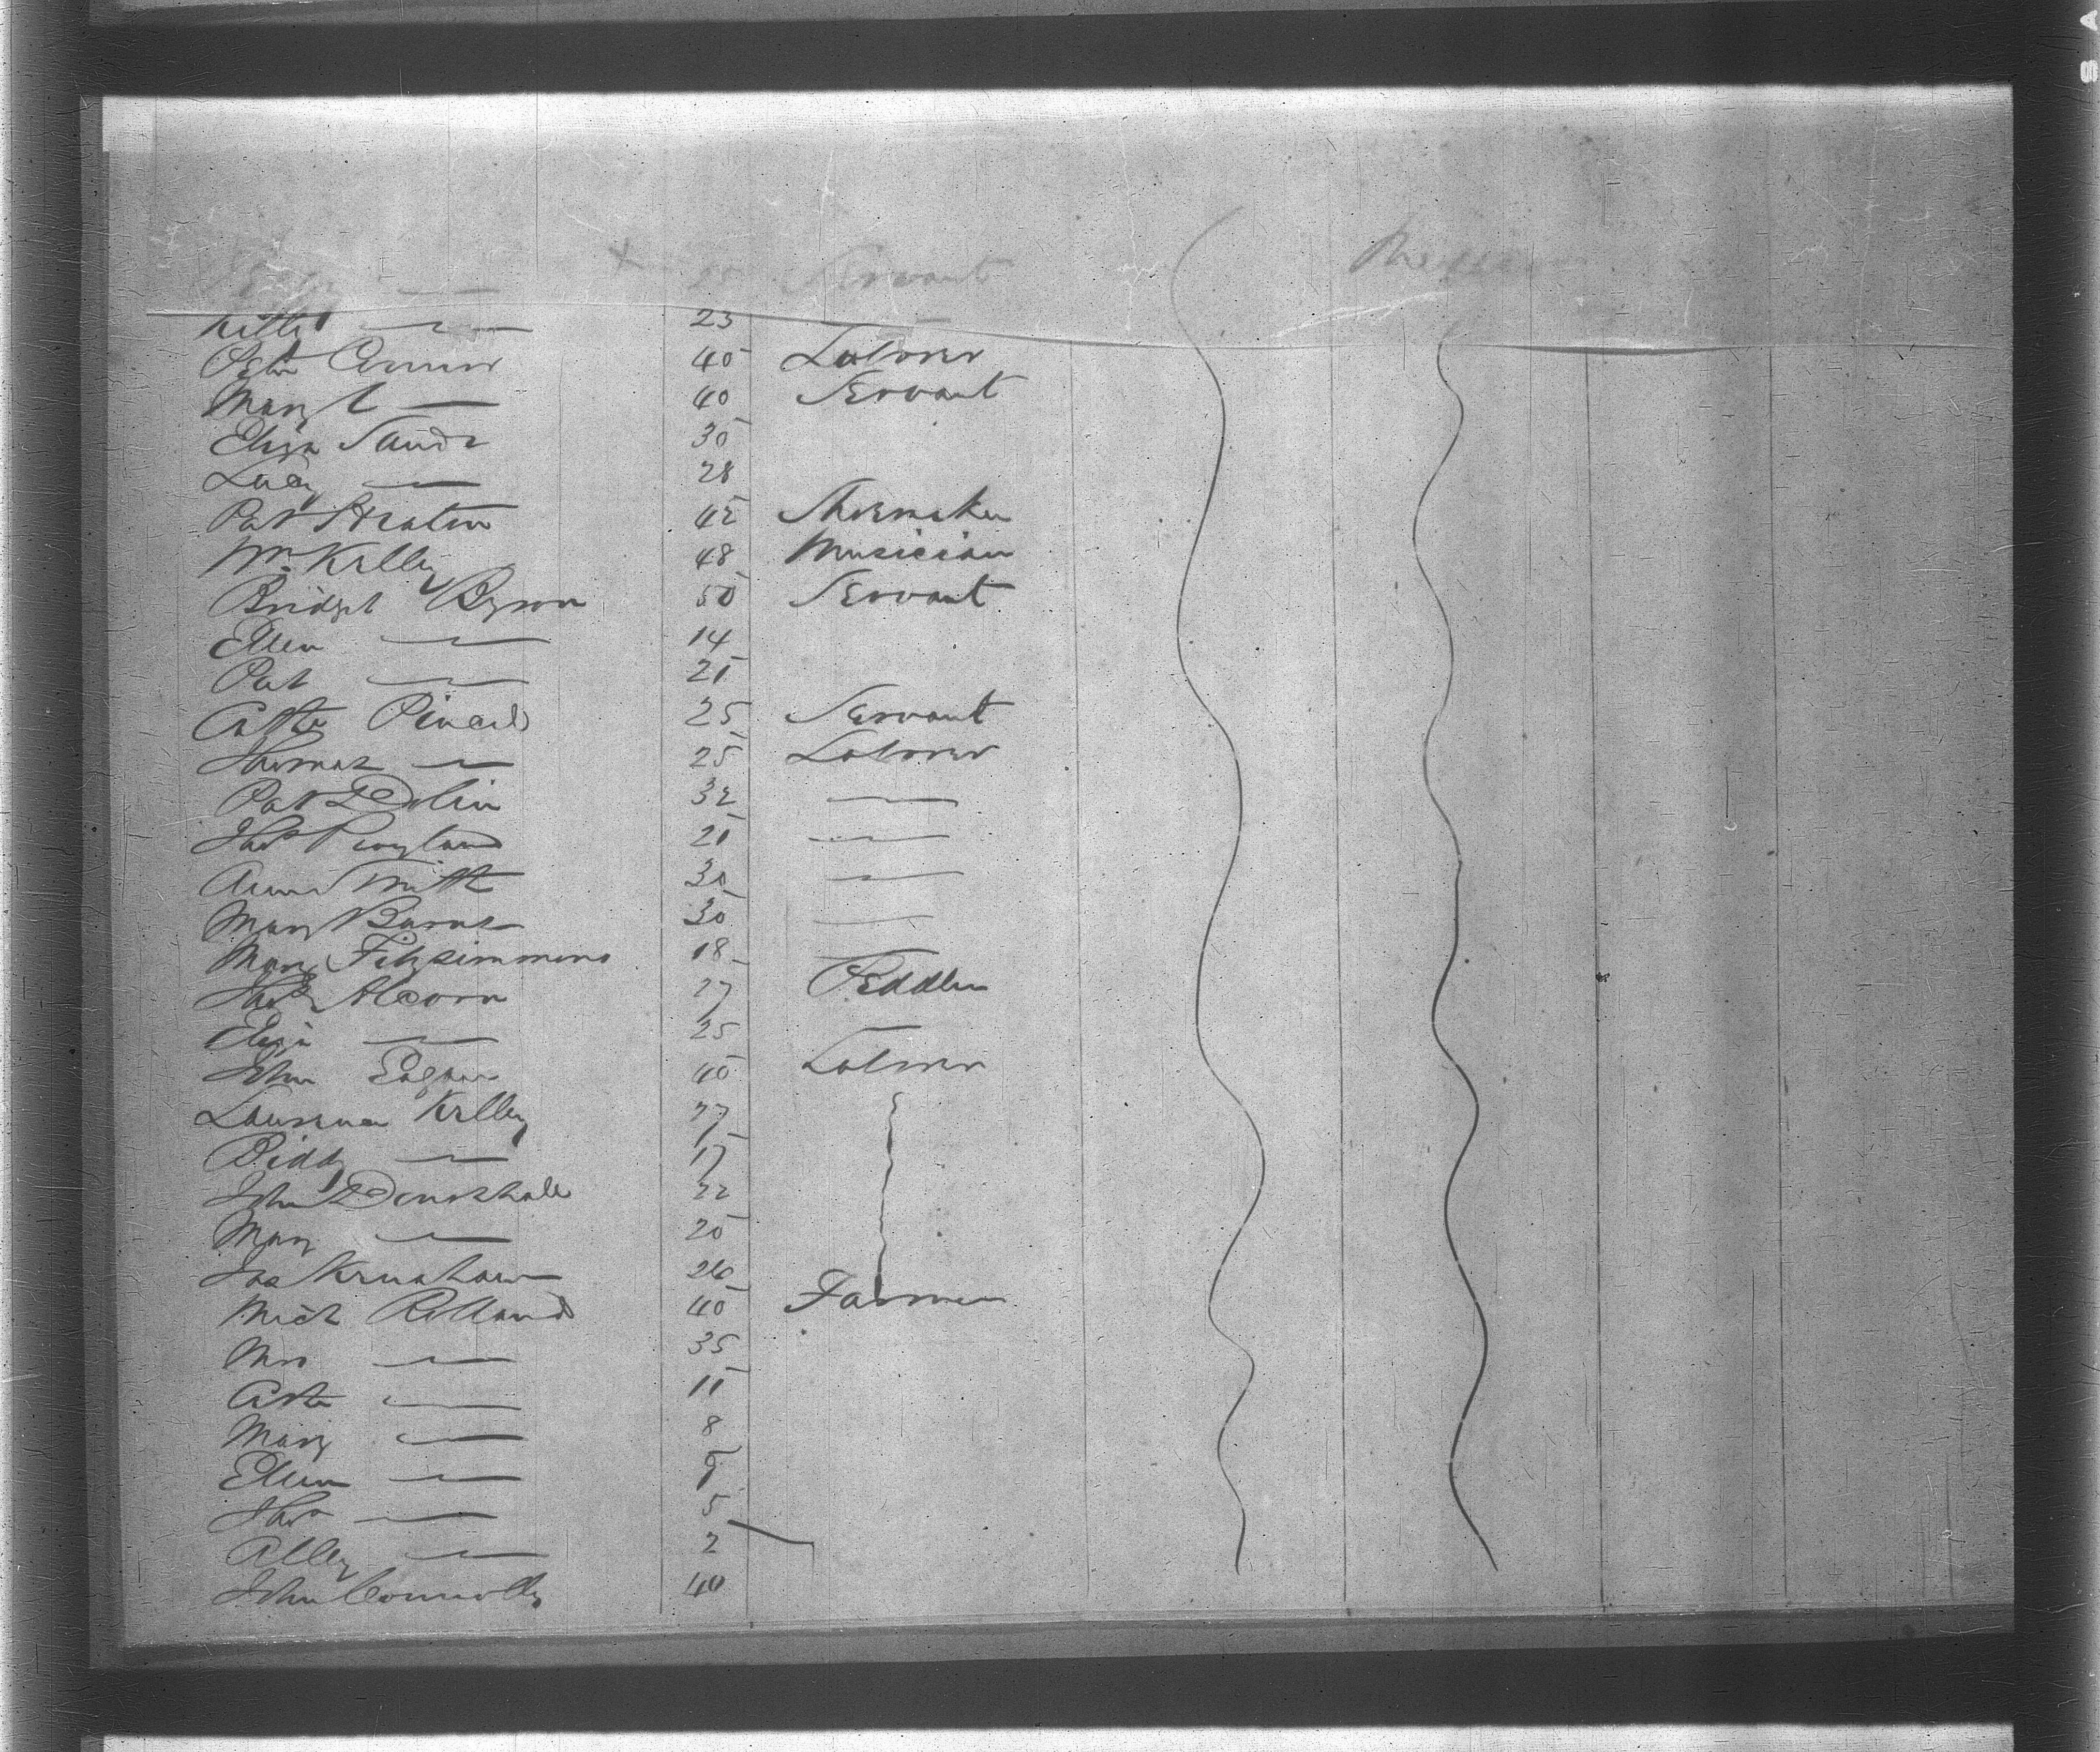 25 Servant
Kitty — 23
Peter Connor 40 Laborer
Margt — 40 Servant
Eliza Sands 30
Lucy — 28
Pat Stratin 42 Shoemaker
Wm Kelley 48 Musician
Bridget Byron 50 Servant
Ellen — 14
Pat — 21
Cathe 25 Servant
Thomas — 25 Laborer
Pat Dolin 32 —
Thos 21 —
Anne Smith 30 —
Mary Burns 30 —
Mary Fitzsimmons 18 —
Thos Alcorn 27 Peddler
Eliza — 25 —
John Eagan 40 Laborer
Laurence Kelley 27
Biddy — 17
John Denshall 22
Mary — 20
Jas Krushaw 26
Mich Rolland 40 Farmer
Mrs — 35
Cathe — 11
Mary — 8
Ellen — 9
Thos — 5
Alley — 2
John Connolly 40